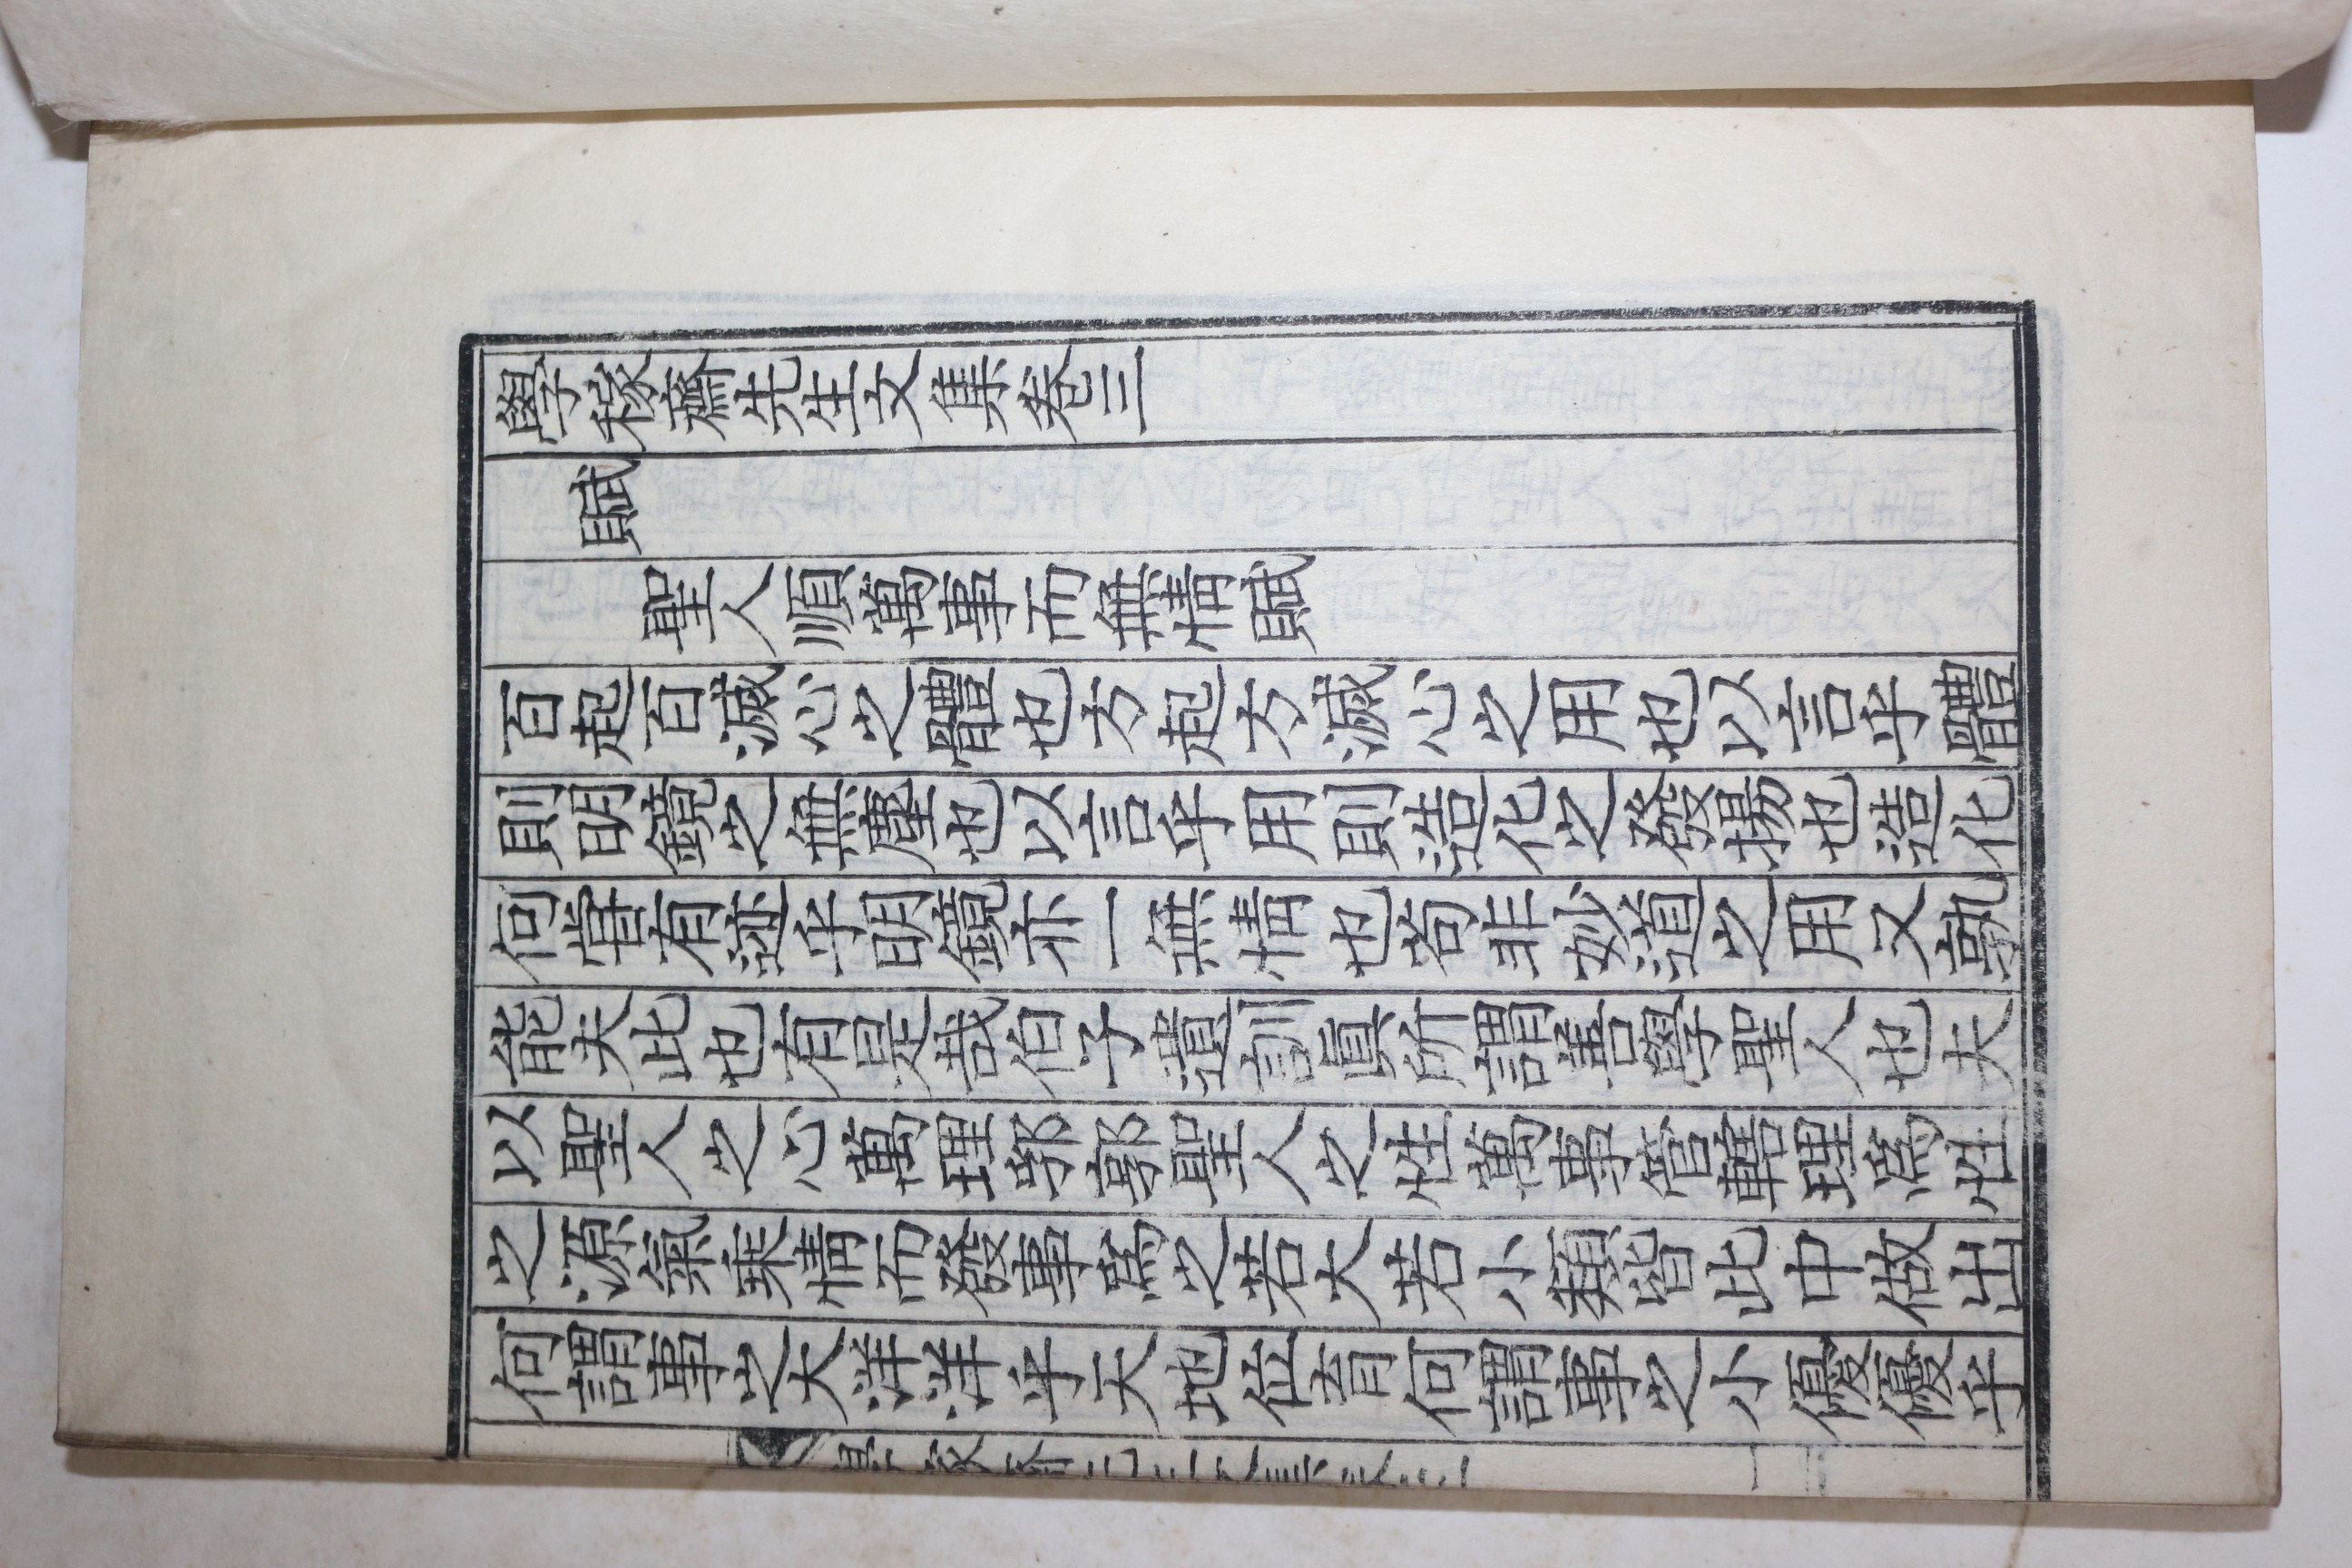 學稼齋先生文集卷三
賦
聖人順萬事而無情賦
百起百滅心之體也方起方滅心之用也以言乎體
則明鏡之無塵也以言乎用則造化之發揚也造化
何嘗有迹乎明鏡亦一無情也苟非妙道之用又孰
能夫此也有是哉伯子遺訓眞所謂善學聖人也夫
以聖人之心萬理郛郭聖人之性萬事管轄理爲性
之源氣乘情而發事爲之若大若小類皆此中做出
何謂事之大洋洋乎天地位育何謂事之小優優乎